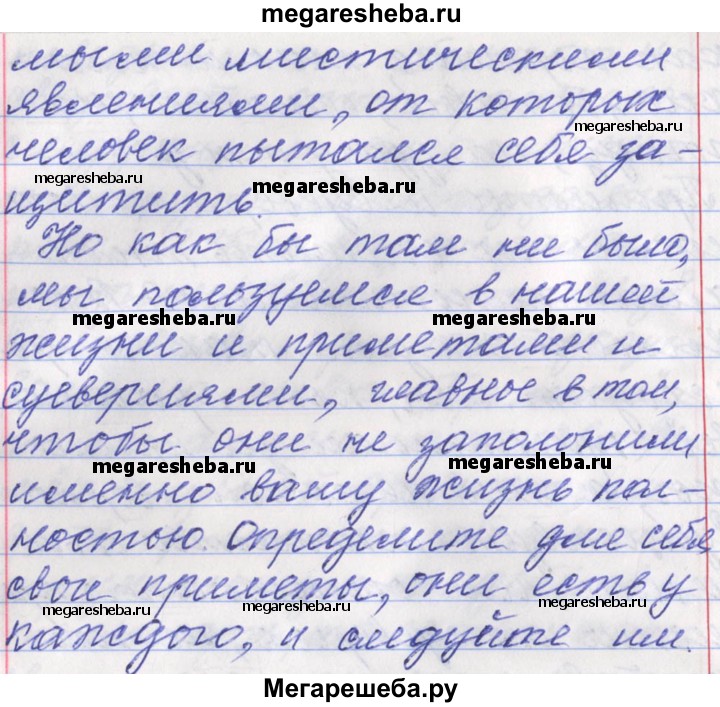 megaresheba.ru
мыми мистическими
явлениями, от которых
megaresheba.ru
человек пытался себя за-
megaresheba.ru
megaresheba.ru
щитить.
Но как бы там ни было,
мы пользуемся в нашей
megaresheba.ru
megaresheba.ru
жизни и приметами и
суевериями, главное в том,
чтобы они не заполонили
megaresheba.ru
megaresheba.ru
именно вашу жизнь пол-
ностью. Определите для себя
свои приметы, они есть у
megaresheba.ru
megaresheba.ru
megaresheba.ru
каждого, и следуйте им.
Мегарешеба.ру